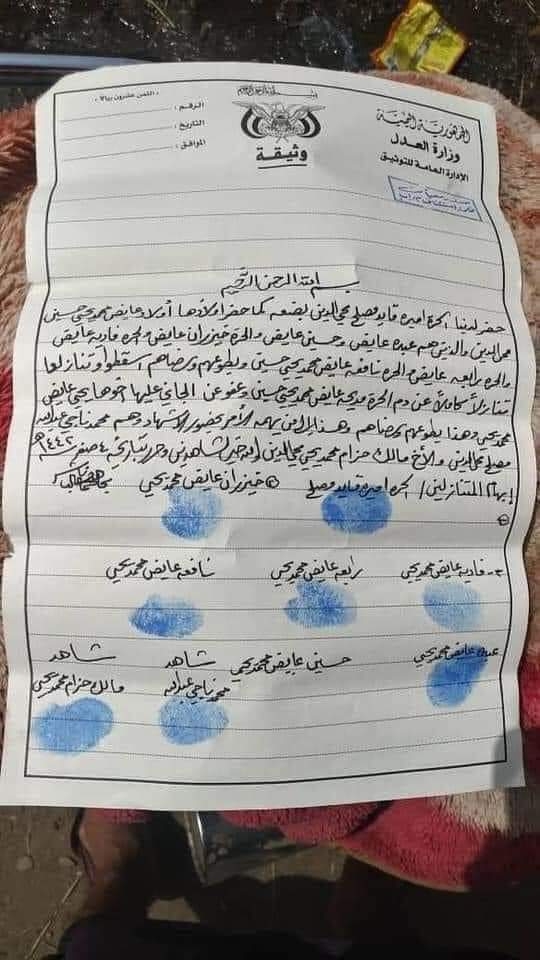 الجمهورية اليمنية
وزارة العدل
الإدارة العامة للتوثيق
بسم الله الرحمن الرحيم
وثيقة
« الثمن عشرون ريالاً »
الرقم :
التاريخ :
الموافق :
بسم الله الرحمن الرحيم
حضر لدينا الحره اميره قايد مصلح محي الدين بضعه كما حضر اولادها أولاد عايض محمد يحيى حسين
محي الدين والذين هم عبده عايض وحسين عايض والحره خيزران عايض والحره فاديه عايض
والحره رابعه عايض والحره نافعه عايض محمد يحيى حسين وبطوعهم ورضاهم اسقطوا وتنازلوا
تنازلاً كاملاً عن دم الحره مديحه عايض محمد يحيى حسين وعفو عن الجاني عليها اخوها يحيى عايض
محمد يحيى وهذا بطوعهم ورضاهم وهذا إلى من يهمه الأمر بحضور الاشهاد وهم محمد ناجي عبدالله
مصلح محي الدين والأخ مالك حزام محمد يحيى محي الدين والله خير الشاهدين وحرر بتاريخ ٤ صفر ١٤٤٢هـ
إبهام المتنازلين / الحره اميره قايد مصلح خيزران عايض محمد يحيى
٣- فاديه عايض محمد يحيى رابعه عايض محمد يحيى نافعه عايض محمد يحيى
عبده عايض محمد يحيى حسين عايض محمد يحيى شاهد شاهد
محمد ناجي عبدالله مالك حزام محمد يحيى